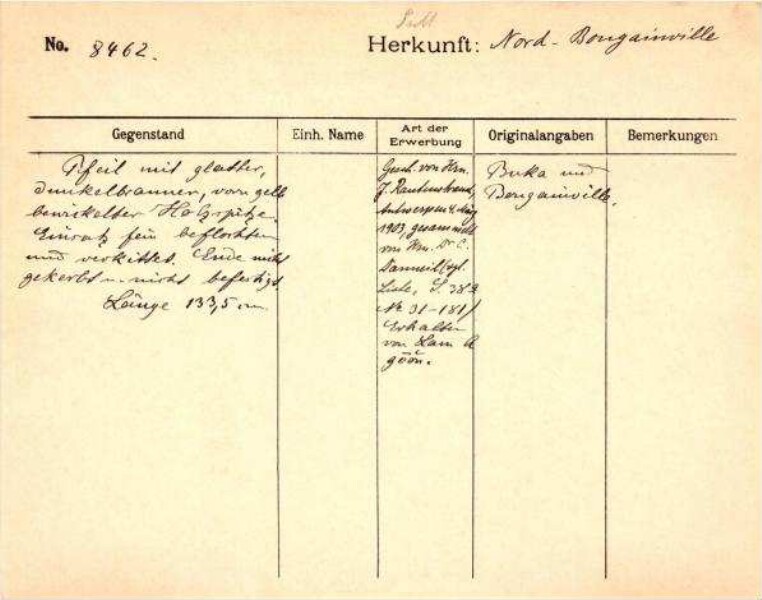 No. 8462.
Herkunft: Nord-Bougainville
Gegenstand
Einh. Name
Art der Erwerbung
Originalangaben
Bemerkungen
Pfeil mit glatter,
dunkelbrauner, vorn gelb
bewickelter Holzspitze.
Einsatz fein beflochten
und verkittet. Ende nicht
gekerbt u. nicht befestigt.
Länge 133,5 cm.
Gesch. von Hrn.
J. Rautenstrauch,
Antwerpen 4. März
1903, gesammelt
von Hrn. Dr. C.
Liste, S. 382
No 31-181)
Erhalten
von
Buka und
Bougainville.